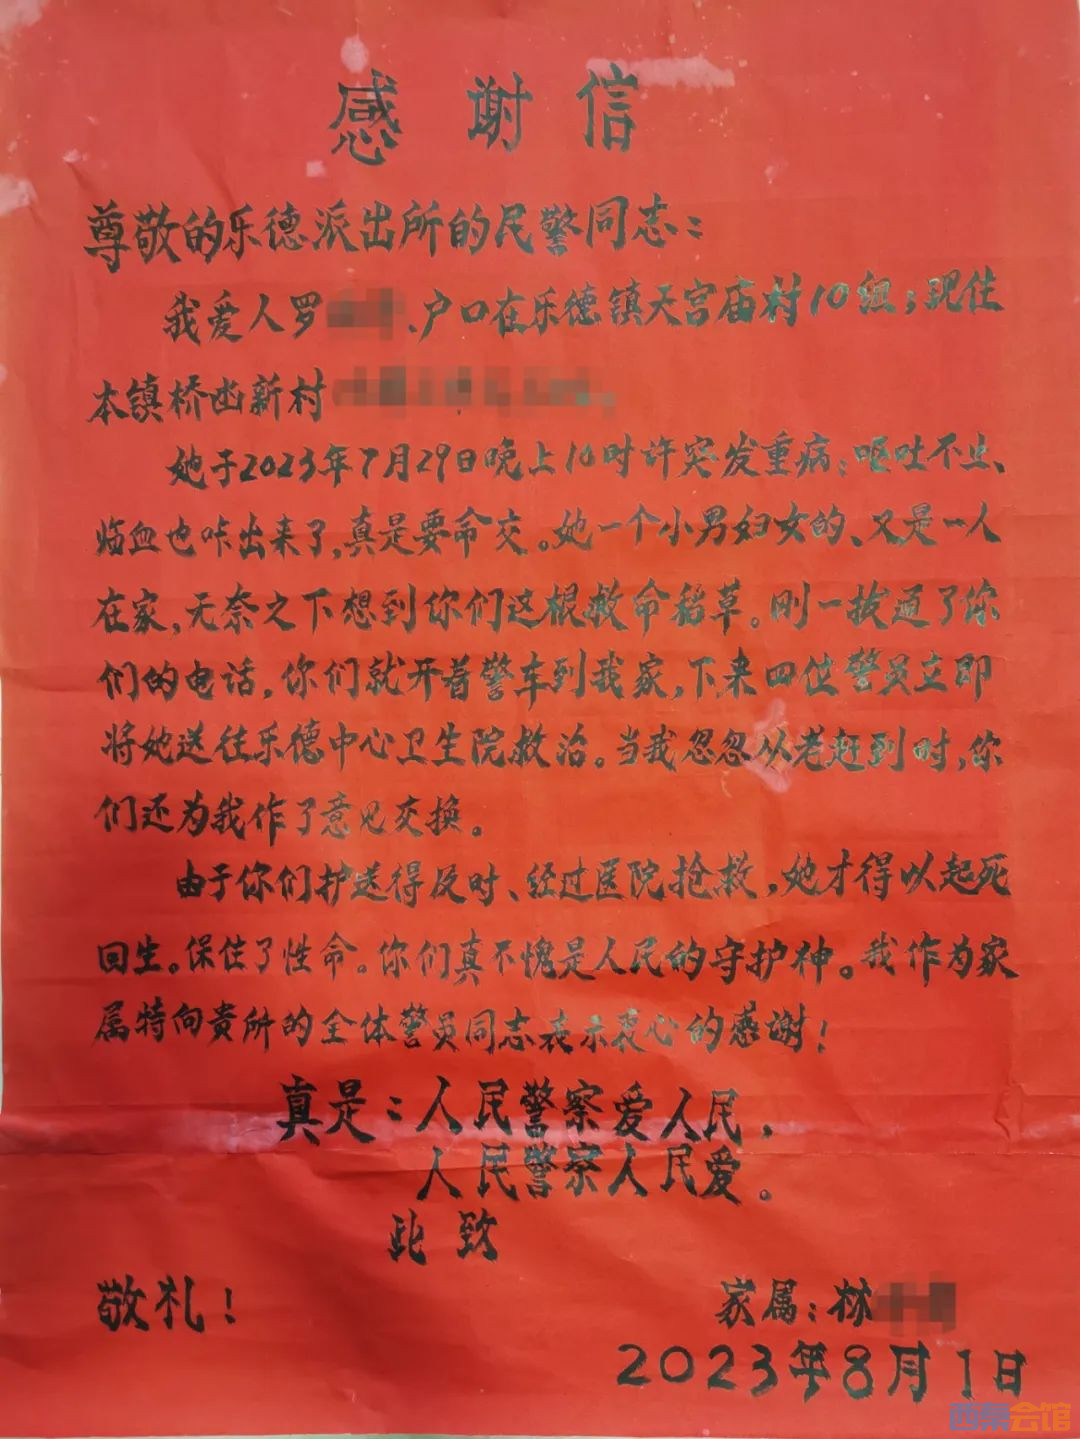 感谢信
尊敬的乐德派出所的民警同志：
我爱人罗、户口在乐德镇天宫庙村10组；现住
本镇桥凼新村
她于2023年7月29日晚上10时许突发重病：呕吐不止、
临血也咔出来了，真是要命交。她一个小男妇女的、又是一人
在家，无奈之下想到你们这根救命稻草。刚一拔通了你
们的电话，你们就开着警车到我家，下来四位警员立即
将她送往乐德中心卫生院救治。当我忽忽从老赶到时，你
们还为我作了意见交换。
由于你们护送得及时、经过医院抢救，她才得以起死
回生。保住了性命。你们真不愧是人民的守护神。我作为家
属特向贵所的全体警员同志表示衷心的感谢！
真是：人民警察爱人民，
人民警察人民爱。
此致
敬礼！
家属：林
2023年8月1日
西秦会馆